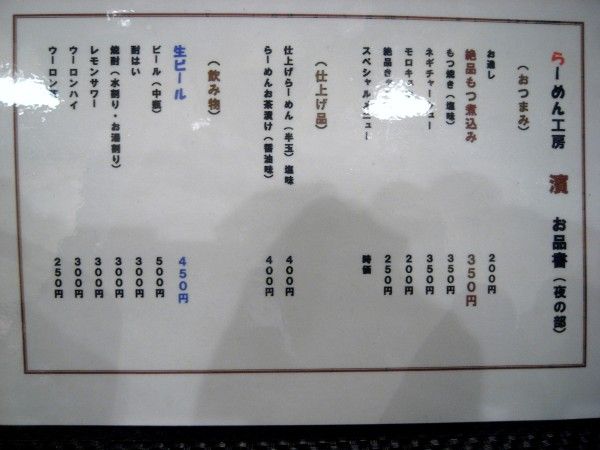 らーめん工房 濱 お品書（夜の部）
（おつまみ）
お通し 200円
絶品もつ煮込み 350円
もつ焼き（塩味） 350円
ネギチャーシュー 350円
モロキュ 200円
絶品き 250円
スペシャルメニュー 時価
（仕上げ品）
仕上げらーめん（半玉）塩味 400円
らーめんお茶漬け（醤油味） 400円
（飲み物）
生ビール 450円
ビール（中瓶） 500円
酎はい 300円
焼酎（水割り・お湯割り） 300円
レモンサワー 300円
ウーロンハイ 300円
ウーロン 250円